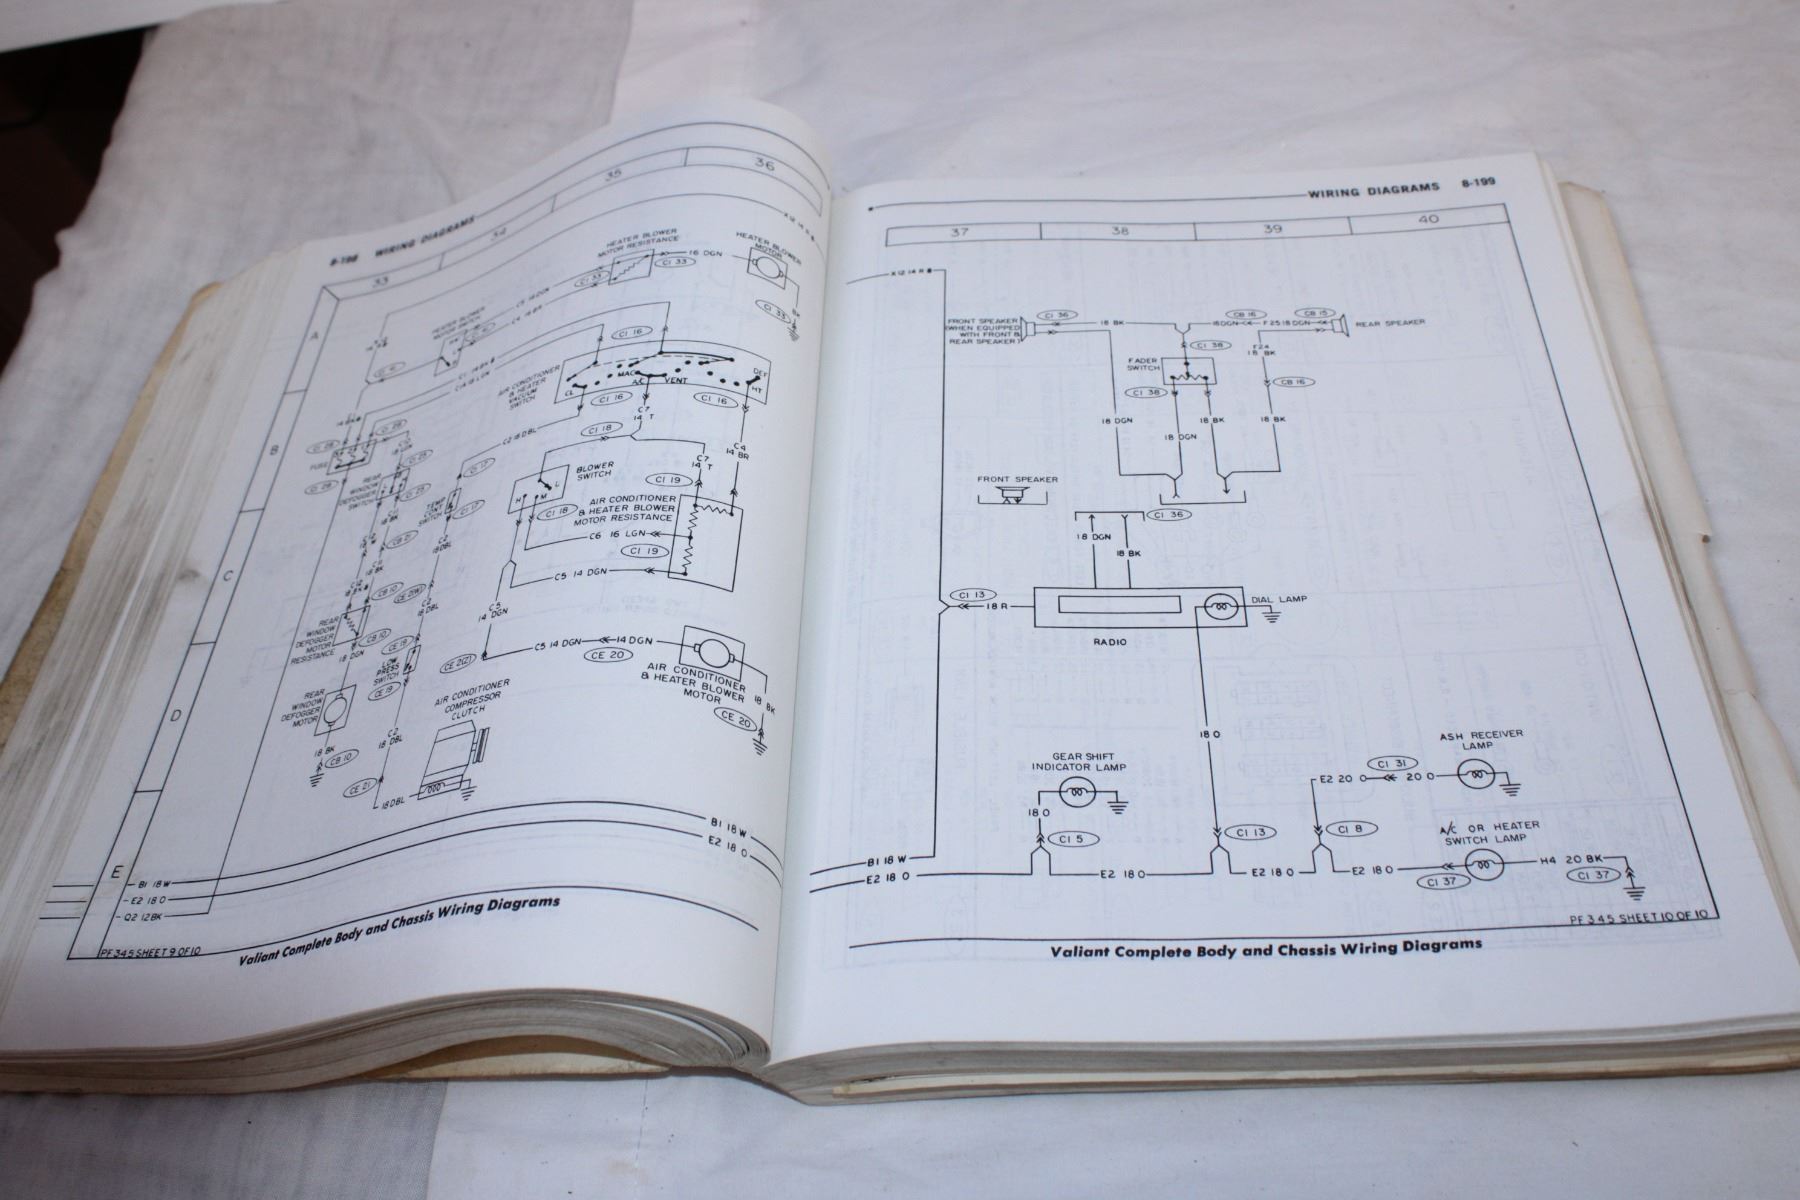 8-198 WIRING DIAGRAMS
33
34
35
36
A
B
C
D
E
X12 14 R
HEATER BLOWER
MOTOR RESISTANCE
16 DGN
CI 33
CI 33
HEATER BLOWER
MOTOR
CI 33
BK
HEATER BLOWER
MOTOR SWITCH
CI 16
AIR CONDITIONER
& HEATER
VACUUM
SWITCH
MAC
A/C
VENT
DEF
HT
CL
CI 16
CI 16
C7
14 T
C2 18 DBL
CI 18
C4
14 BR
C7
14 T
BLOWER
SWITCH
H
M
L
CI 18
CI 19
AIR CONDITIONER
& HEATER BLOWER
MOTOR RESISTANCE
C6 16 LGN
CI 19
C5 14 DGN
C5
14 DGN
FUSE
CI 28
REAR
WINDOW
DEFOGGER
SWITCH
TEMP
CONT
SWITCH
CI 17
CI 17
C2
18 DBL
CB 10
C2
18 DBL
REAR
WINDOW
DEFOGGER
MOTOR
RESISTANCE
CB 10
18 DGN
CE 19
LOW
PRESS
SWITCH
CE 19
REAR
WINDOW
DEFOGGER
MOTOR
18 BK
CB 10
C2
18 DBL
CE 21
18 DBL
AIR CONDITIONER
COMPRESSOR
CLUTCH
CE 2(2)
C5 14 DGN
14 DGN
CE 20
AIR CONDITIONER
& HEATER BLOWER
MOTOR
18 BK
CE 20
B1 18 W
E2 18 O
B1 18 W
E2 18 O
Q2 12 BK
PF 345 SHEET 9 OF 10
Valiant Complete Body and Chassis Wiring Diagrams
WIRING DIAGRAMS 8-199
37
38
39
40
X12 14 R
FRONT SPEAKER
(WHEN EQUIPPED
WITH FRONT &
REAR SPEAKER)
CI 36
18 BK
CB 16
CB 15
18DGN
F25 18 DGN
REAR SPEAKER
CI 38
FADER
SWITCH
F24
18 BK
CI 38
CB 16
18 DGN
18 DGN
18 BK
18 BK
FRONT SPEAKER
CI 36
18 DGN
18 BK
CI 13
18 R
DIAL LAMP
RADIO
18 O
GEAR SHIFT
INDICATOR LAMP
18 O
CI 5
CI 13
ASH RECEIVER
LAMP
CI 31
E2 20 O
20 O
CI 8
A/C OR HEATER
SWITCH LAMP
B1 18 W
E2 18 O
E2 18 O
E2 18 O
E2 18 O
CI 37
H4 20 BK
CI 37
PF 345 SHEET 10 OF 10
Valiant Complete Body and Chassis Wiring Diagrams